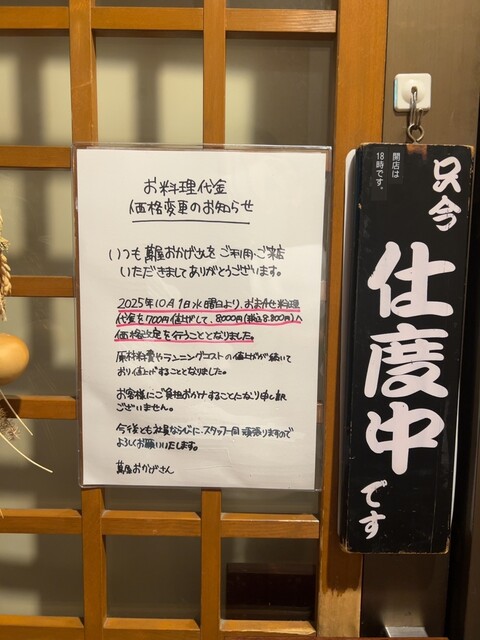 お料理代金
価格変更のお知らせ
いつも萬屋おかげさんをご利用・ご来店
いただきましてありがとうございます。
2025年10月1日水曜日より、おまかせ料理
代金を700円値上げして、8000円(税込8.800円)へ
価格改定を行うこととなりました。
原材料費やランニングコストの値上がりが続いて
おり値上げすることとなりました。
お客様にご負担おかけすることになり申し訳
ございません。
今後とも社員ならびに、スタッフ一同頑張りますので
よろしくお願いいたします。
萬屋おかげさん
開店は
18時です。
只今
仕度中
です